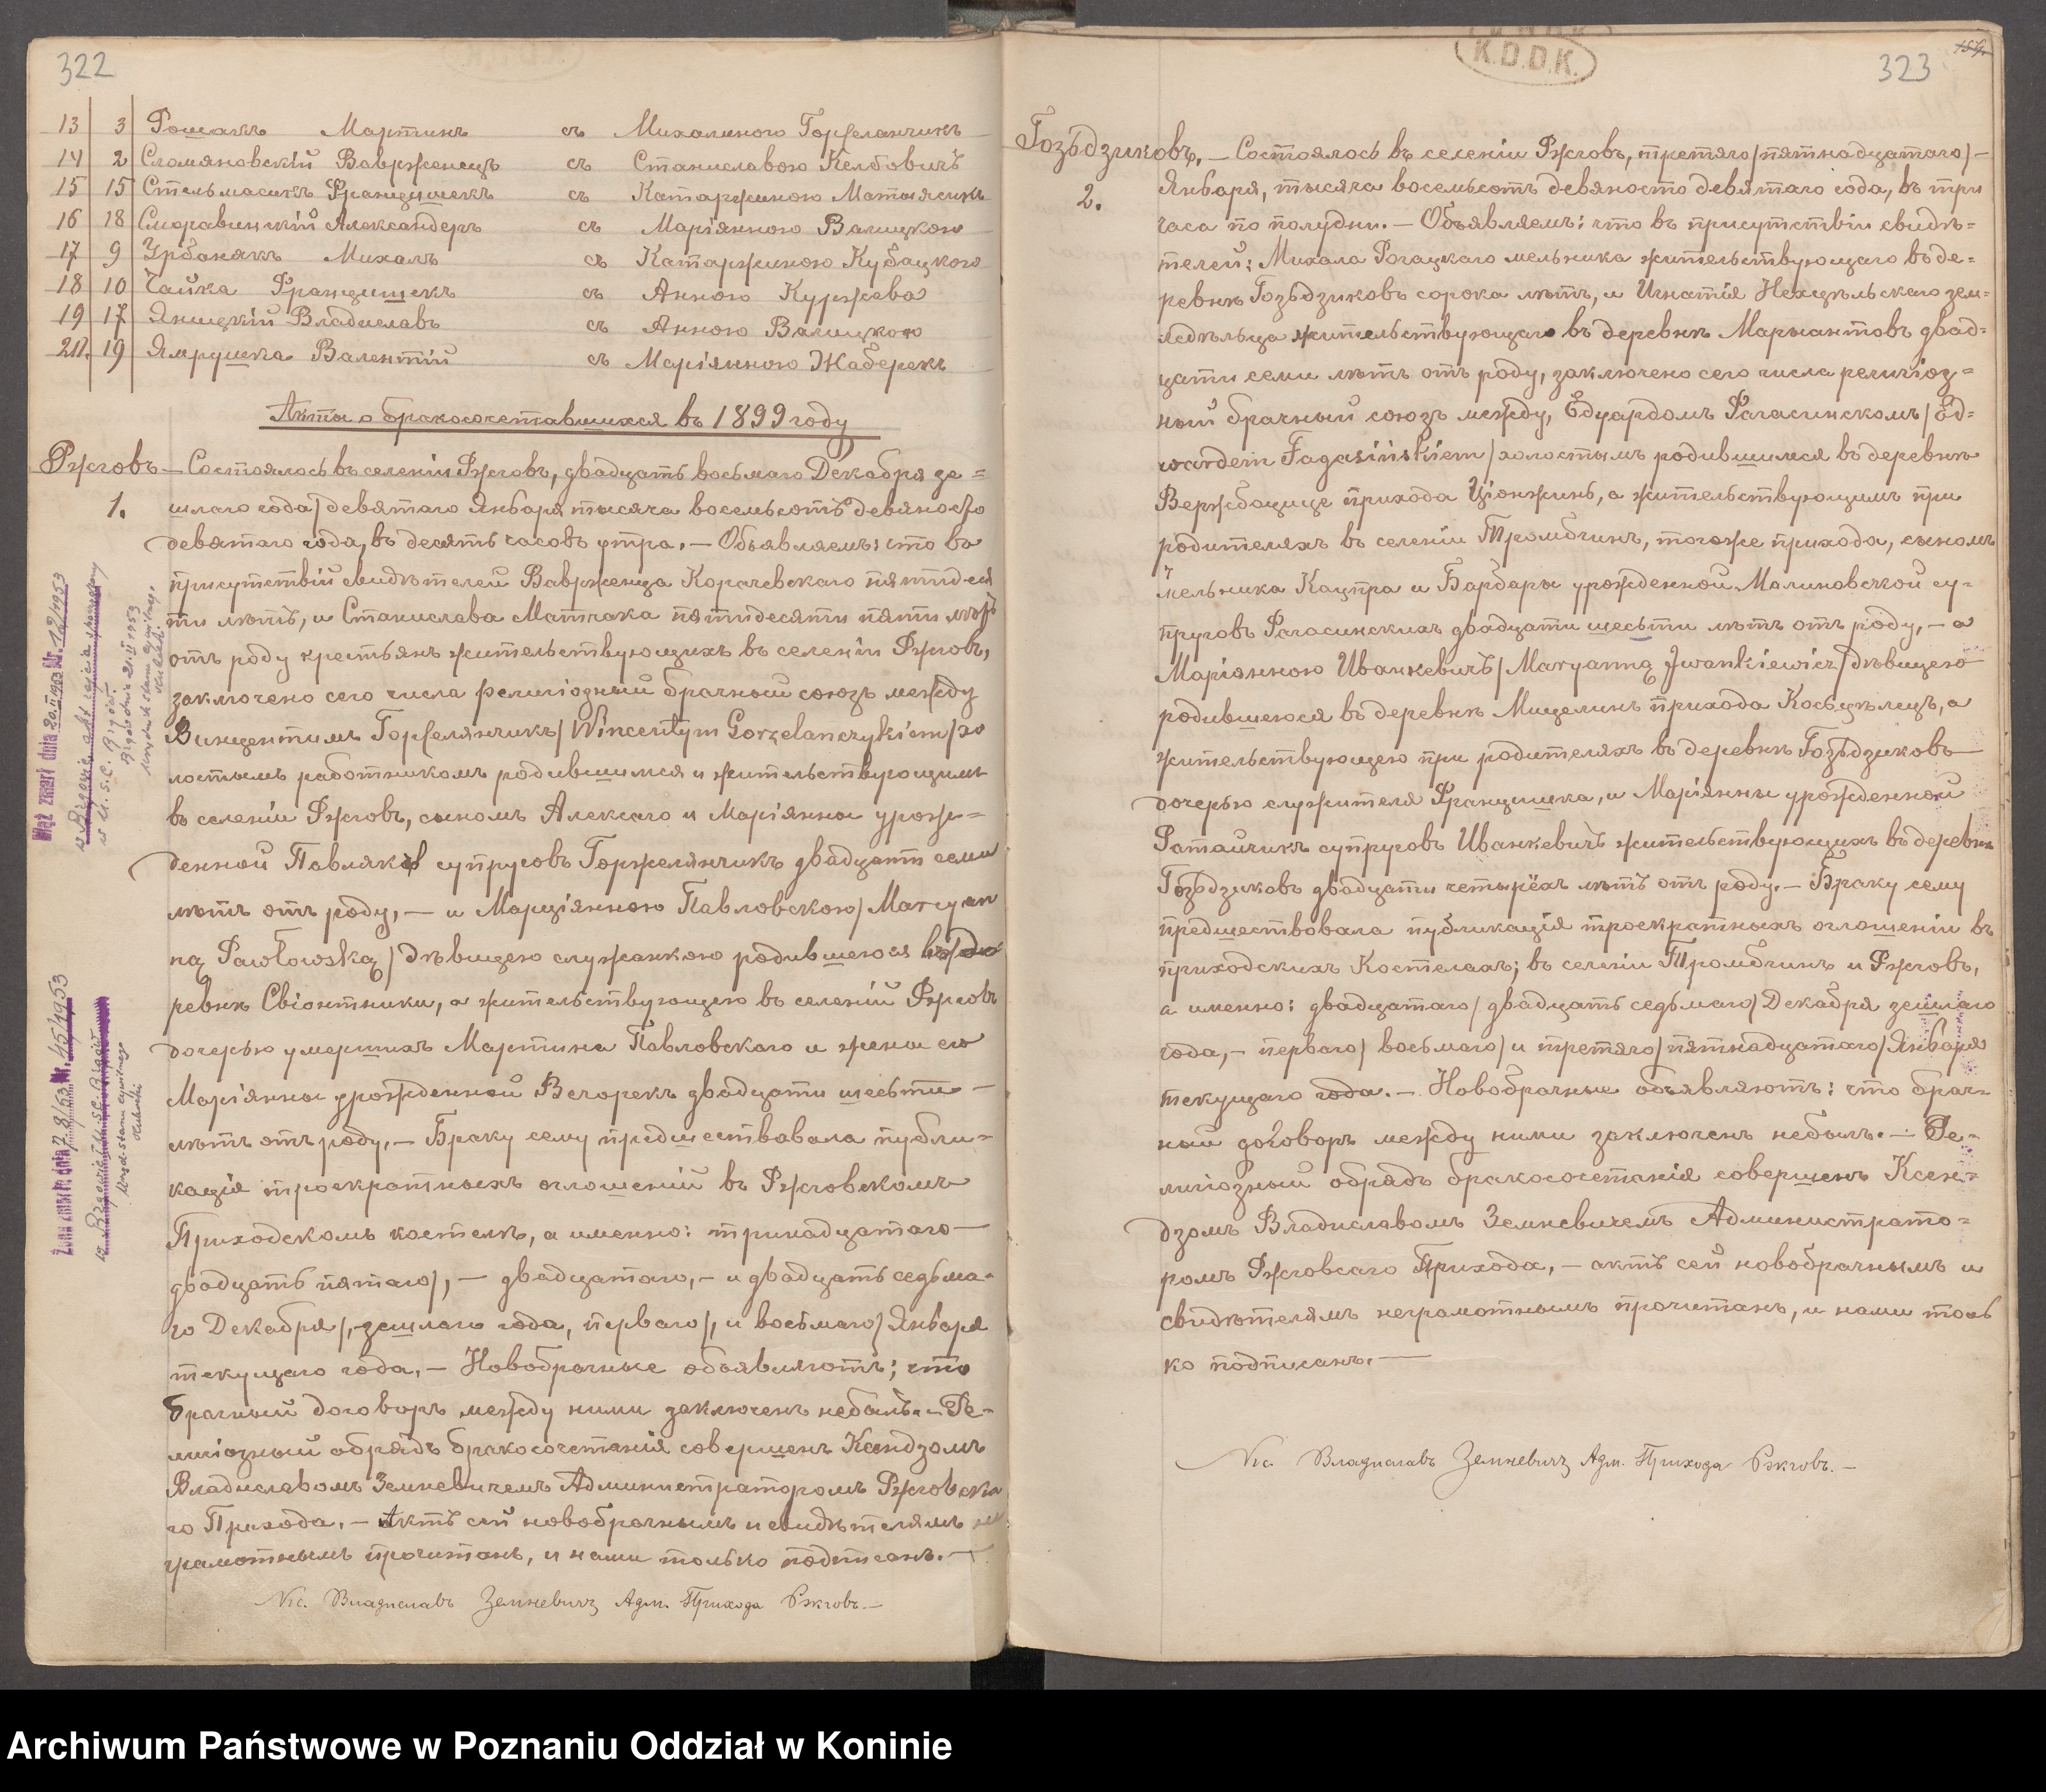 322
13 3 Рошакъ Мартинъ съ Михалиною Горжеланчикъ
14 2 Сломяновскій Вавржинецъ съ Станиславою Келбовичъ
15 15 Стельмасикъ Францишекъ съ Катаржиною Матыясикъ
16 18 Сморавинскій Александеръ съ Маріянною Валицкою
17 9 Урбанякъ Михалъ съ Катаржиною Кубацкою
18 10 Чайка Францишекъ съ Анною Куржава
19 17 Яницкій Владиславъ съ Анною Валицкою
20. 19 Ямрушка Валентій съ Маріянною Жаберекъ
Акты о бракосочетавшихся въ 1899 году
Ржговъ — Состоялось въ селеніи Ржговъ, двадцать восьмаго Декабря зе=
1. шлаго года/девятаго Января тысяча восемьсотъ девяносто
девятаго года, въ десять часовъ утра. — Объявляемъ: что въ
присутствіи свидѣтелей Вавржинца Корачевскаго пятидеся
ти лѣтъ, и Станислава Матчака пятидесяти пяти лѣтъ
отъ роду крестьянъ жительствующихъ въ селеніи Ржговъ,
заключено сего числа религіозный брачный союзъ между
Винцентимъ Горжелянчикъ/Wincentym Gorzelanczykiem/хо
лостымъ работникомъ родившимся и жительствующимъ
въ селеніи Ржговъ, сыномъ Алексаго и Маріянны урож=
денной Павлякъ супруговъ Горжелянчикъ двадцати семи
лѣтъ отъ роду, — и Марціянною Павловскою/Marcyan
ną Pawłowską/дѣвицею служанкою родившеюся въ де
ревнѣ Свіонтники, а жительствующею въ селеніи Ржговъ
дочерью умершихъ Мартина Павловскаго и жены его
Маріянны урожденной Вечорекъ двадцати шести —
лѣтъ отъ роду. — Браку сему предшествовала публи=
кація троекратныхъ оглашеній въ Ржговскомъ
Приходскомъ костелѣ, а именно: тринадцатаго —
двадцать пятаго/, — двадцатаго, — и двадцать седьма=
го Декабря/, зешлаго года, перваго/, и восьмаго/Января
текущаго года. — Новобрачные объявляютъ: что
брачный договоръ между ними заключенъ небылъ. — Ре=
лигіозный обрядъ бракосочетанія совершенъ Ксендзомъ
Владиславомъ Земкевичемъ Администраторомъ Ржговска
го Прихода. — Актъ сей новобрачнымъ и свидѣтелямъ не
грамотнымъ прочитанъ, и нами только подписанъ. —
Кс. Владиславъ Земкевичъ Адм. Прихода Ржговъ. —
Mąż zmarł dnia 20.II.1953 Nr. 12/1953
w Rzgowie akt zejścia sporządzony
w U.S.C. Rzgów.
Rzgów dnia 21.II.1953
Urzędnik stanu cywilnego
Żona zmarła dnia 7.8/53 Nr. 45/1953
w Rzgowie U.S.C. Rzgów
Urzęd. stanu cywilnego
323
K.D.D.K.
Гозьдзиковъ. — Состоялось въ селеніи Ржговъ, третяго/пятнадцатаго/ —
2. Января, тысяча восемьсотъ девяносто девятаго года, въ три
часа по полудни. — Объявляемъ: что въ присутствіи свидѣ=
телей: Михала Рогацкаго мельника жительствующаго въ де=
ревнѣ Гозьдзиковъ сорока лѣтъ, и Игнатія Нехцѣльскаго зем=
ледѣльца жительствующаго въ деревнѣ Марыантовъ двад=
цати семи лѣтъ отъ роду, заключено сего числа религіоз=
ный брачный союзъ между, Едуардомъ Фагасинскомъ/Ed=
wardem Fagasińskiem/холостымъ родившимся въ деревнѣ
Вержбоцице прихода Ціонжинь, а жительствующимъ при
родителяхъ въ селеніи Тромбчинъ, тогоже прихода, сыномъ
мельника Каспра и Барбары урожденной Малиновской су=
пруговъ Фагасинскихъ двадцати шесьти лѣтъ отъ роду, — а
Маріянною Иванкевичъ/Maryanną Iwankiewicz/дѣвицею
родившеюся въ деревнѣ Мицелинъ прихода Косьцѣлецъ, а
жительствующею при родителяхъ въ деревнѣ Гозьдзиковъ
дочерью служителя Францишка, и Маріянны урожденной
Ратайчикъ супруговъ Иванкевичъ жительствующихъ въ деревнѣ
Гозьдзиковъ двадцати четырёхъ лѣтъ отъ роду. — Браку сему
предшествовала публикація троекратныхъ оглошеніи въ
приходскихъ Костелахъ; въ селеніи Тромбчинъ и Ржговъ,
а именно: двадцатаго/двадцать седьмаго/Декабря зешлаго
года, — перваго/восьмаго/и третяго/пятнадцатаго/Января
текущаго года. — Новобрачные объявляютъ: что брач=
ный договоръ между ними заключенъ небылъ. — Ре=
лигіозный обрядъ бракосочетанія совершенъ Ксен=
дзомъ Владиславомъ Земкевичемъ Администрато=
ромъ Ржговсаго Прихода, — актъ сей новобрачнымъ и
свидѣтелямъ неграмотнымъ прочитанъ, и нами толь
ко подписанъ. —
Кс. Владиславъ Земкевичъ Адм. Прихода Ржговъ. —
Archiwum Państwowe w Poznaniu Oddział w Koninie